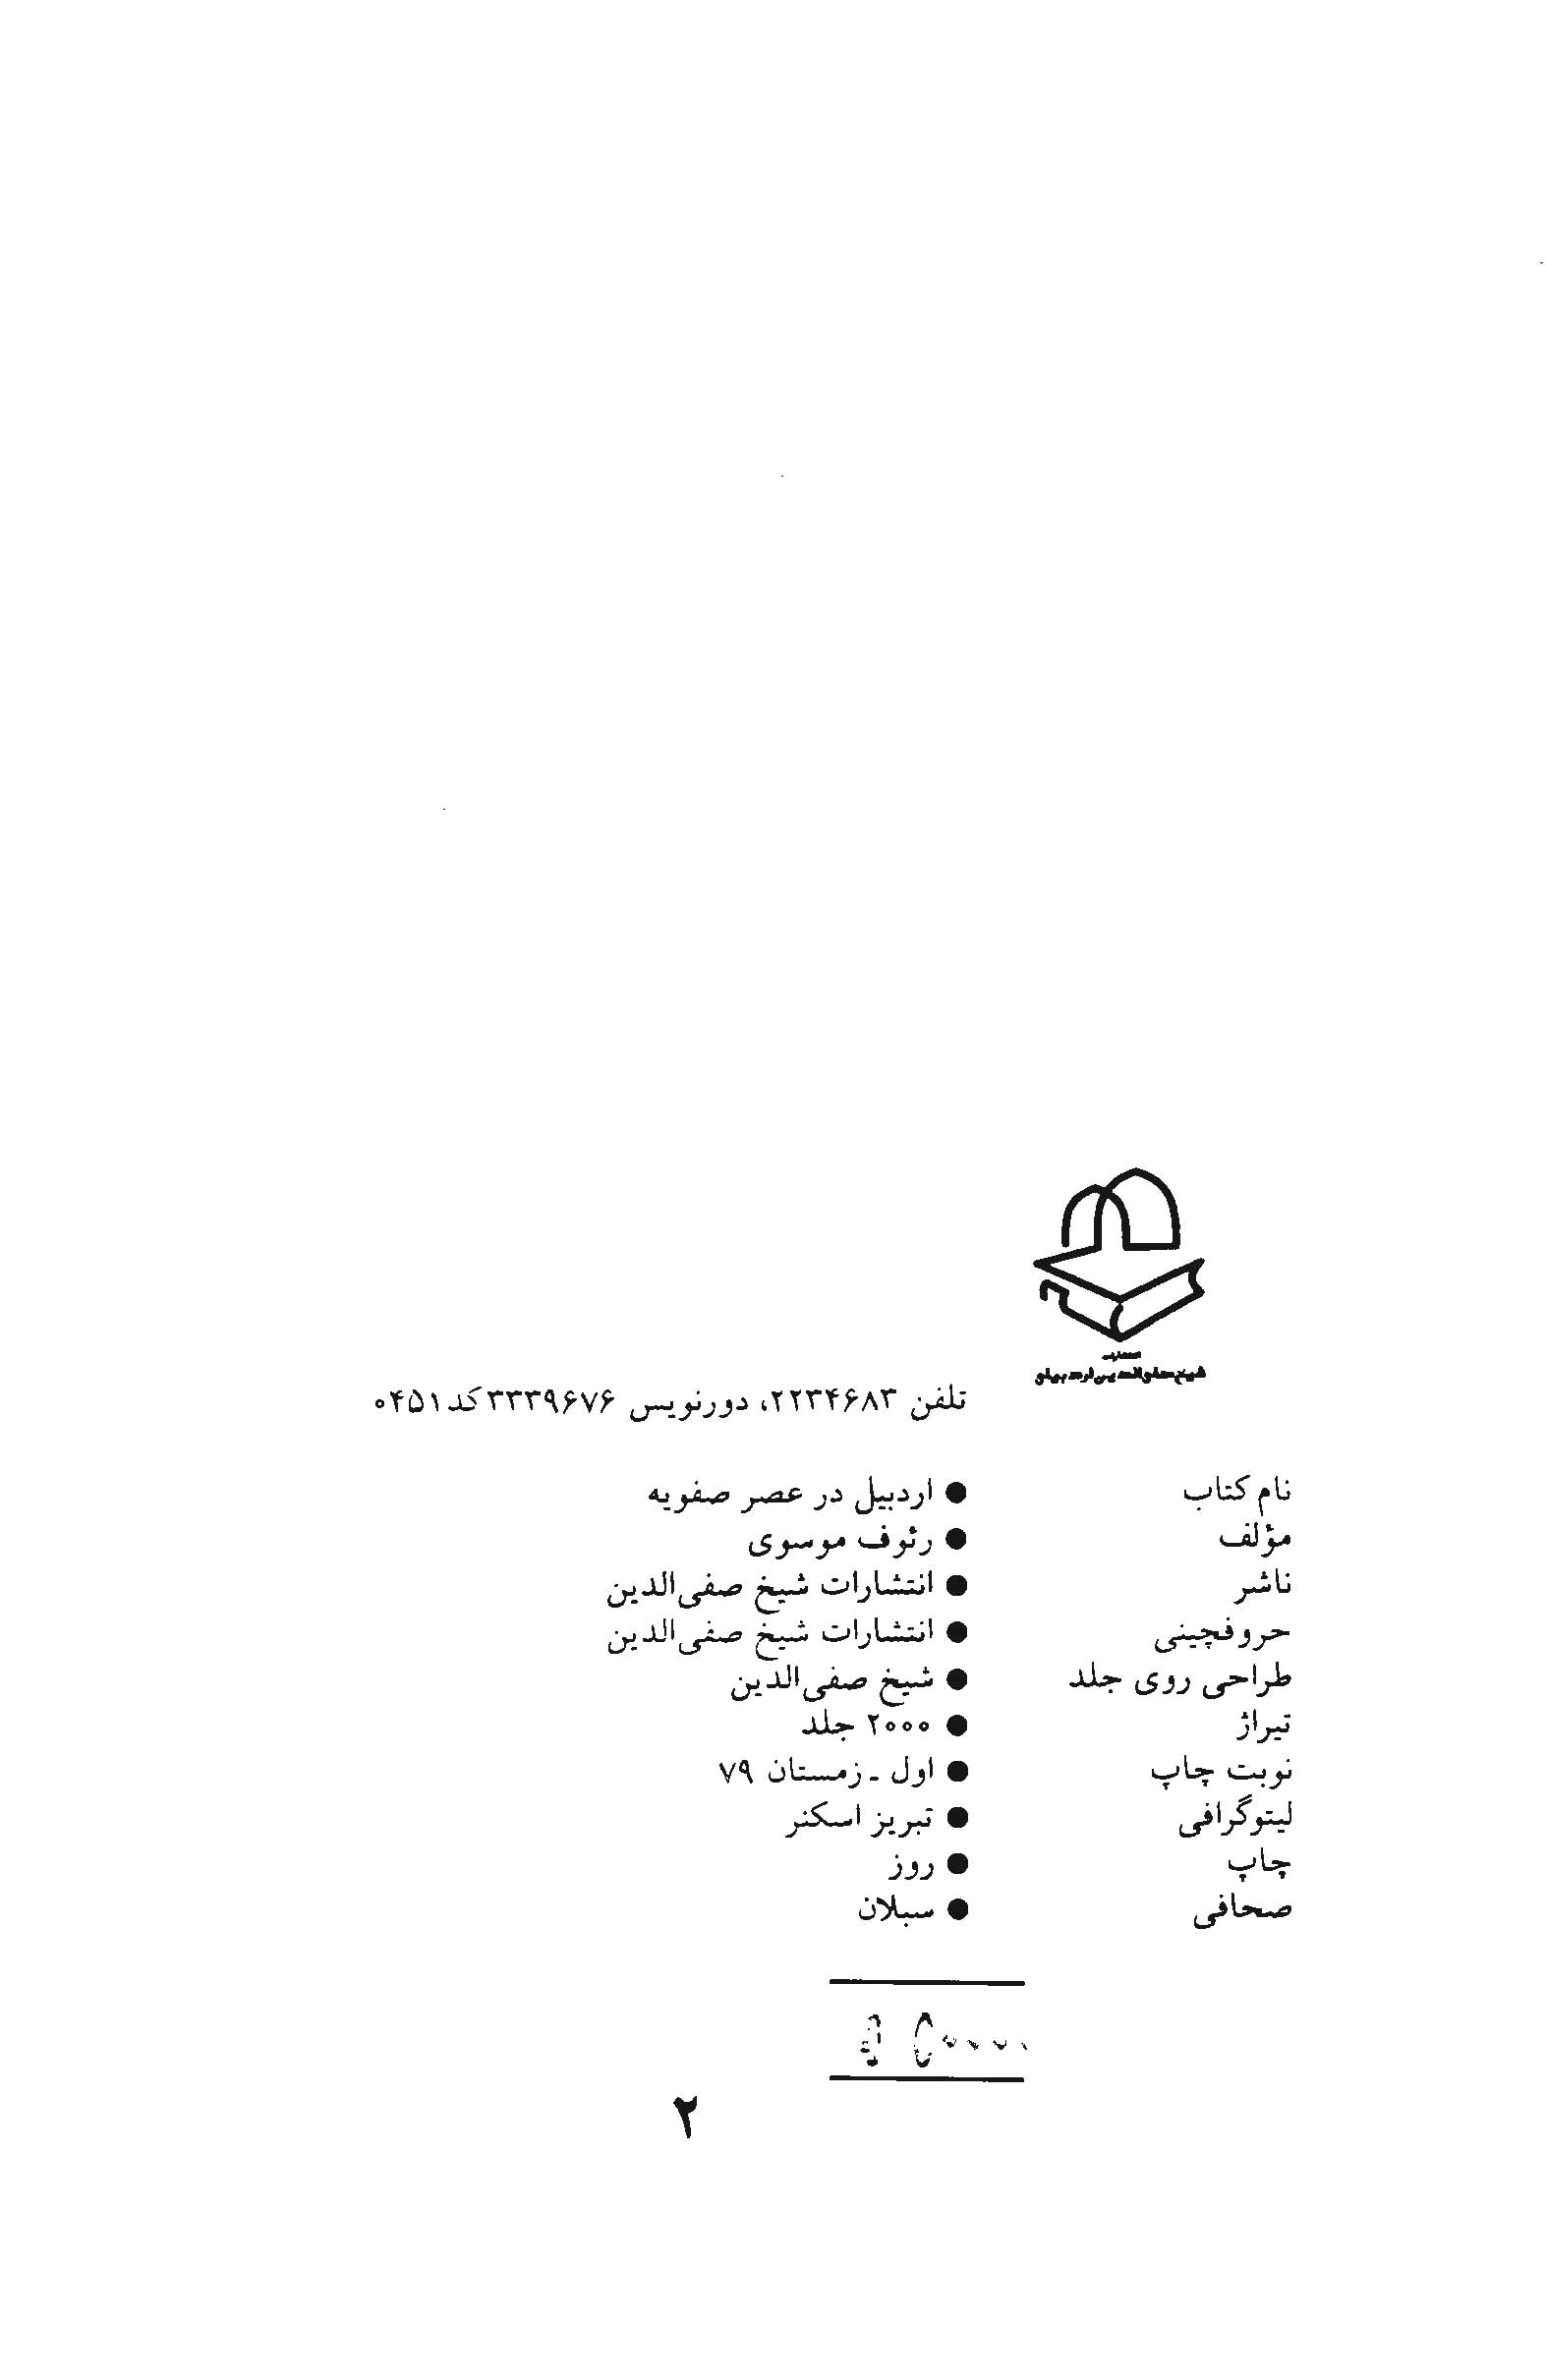 انتشارات
شیخ صفی‌الدین اردبیلی
تلفن ۲۲۳۴۶۸۳، دورنویس ۳۳۳۹۶۷۶ کد ۰۴۵۱
نام کتاب ● اردبیل در عصر صفویه
مؤلف ● رئوف موسوی
ناشر ● انتشارات شیخ صفی‌الدین
حروفچینی ● انتشارات شیخ صفی‌الدین
طراحی روی جلد ● شیخ صفی‌الدین
تیراژ ● ۲۰۰۰ جلد
نوبت چاپ ● اول ـ زمستان ۷۹
لیتوگرافی ● تبریز اسکنر
چاپ ● روز
صحافی ● سبلان
۲